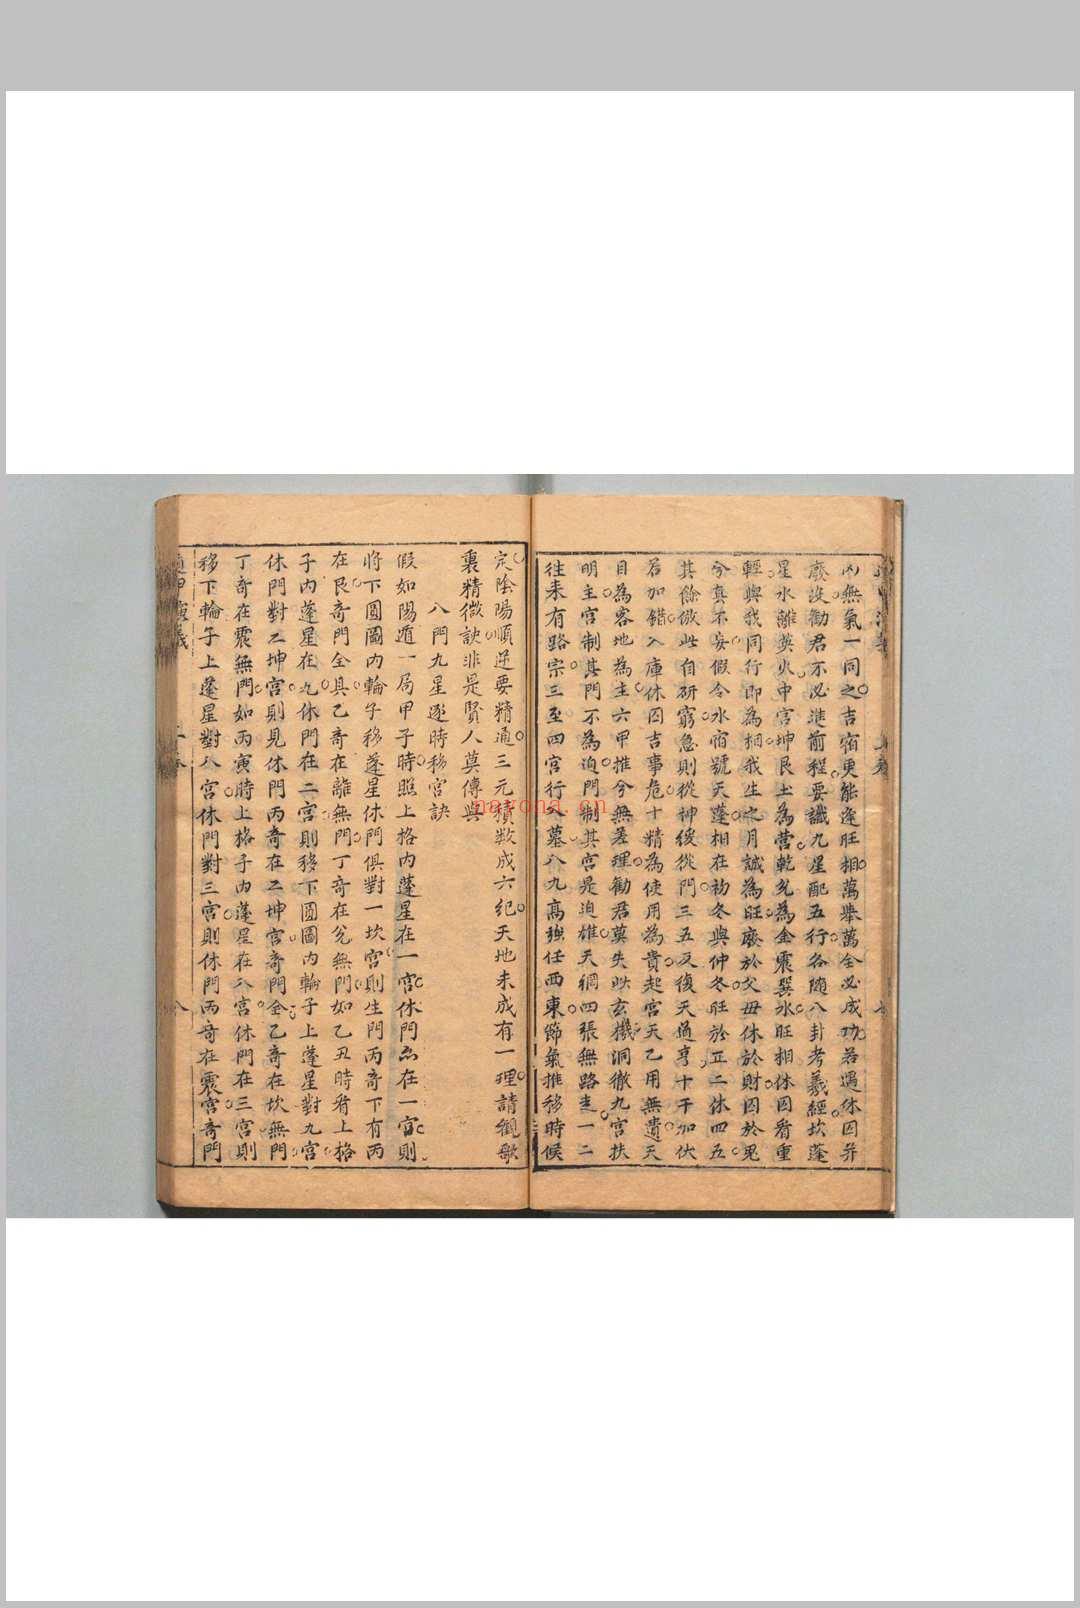 凶無氣一同之吉宿更能逢旺相萬舉萬全必成功若遇休囚并
廢沒勸君不必進前程要識九星配五行各隨八卦考羲經坎蓬
星水離英火中宮坤艮土為營乾兌為金震巽水旺相休囚看重
輕與我同行即為相我生之月誠為旺廢於父母休於財囚於鬼
兮真不妄假令水宿號天蓬相在初冬與仲冬旺於正二休四五
其餘倣此自研窮急則從神緩從門三五反復天通亨十干加伏
若加錯入庫休囚吉事危十精為使用為貴起宮天乙用無遺天
目為客地為主六甲推兮無差理勸君莫失此玄機洞徹九宮扶
明主宮制其門不為迫門制其宮是迫雄天網四張無路走一二
往来有路宗三至四宮行入墓八九高強任西東節氣推移時候
定陰陽順逆要精通三元積数成六纪天地未成有一理請觀歌
裏精微訣非是賢人莫傳與
八門九星逐時移宮訣
假如陽遁一局甲子時照上格内蓬星在一宮休門亦在一宮則
將下圓圖内輪子移蓬星休門俱對一坎宮則生門丙奇下有丙
在艮奇門全具乙奇在離無門丁奇在兌無門如乙丑時看上格
子内蓬星在九休門在二宮則移下圓圖内輪子上蓬星對九宮
休門對二坤宮則見休門丙奇在二坤宮奇門全乙奇在坎無門
丁奇在震無門如丙寅時上格子内蓬星在八宮休門在三宮則
移下輪子上蓬星對八宮休門對三宮則休門丙奇在震宮奇門
遁甲演義
上卷
八
nayona.cn